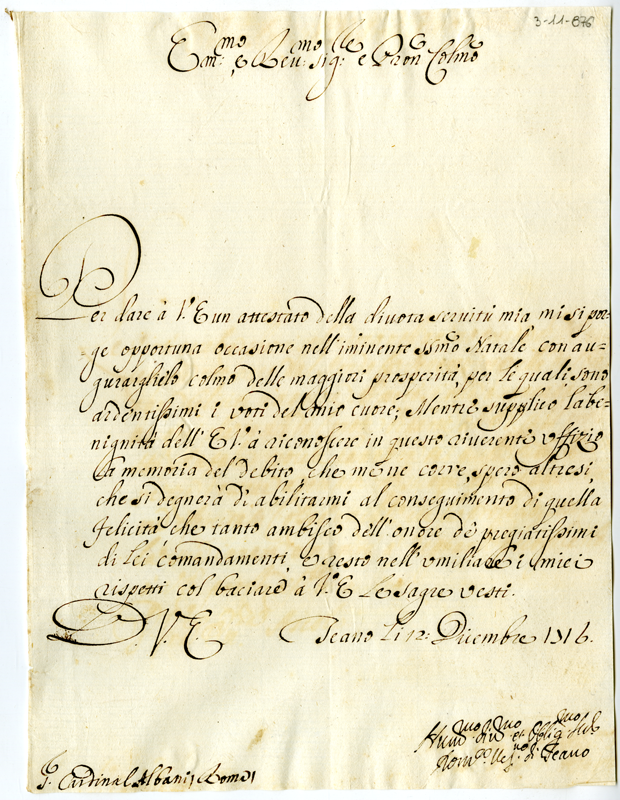 3-11-876
Em:mo e Reu:mo Sig:re e Pron Colmo
Per dare à V.E un attestato della diuota seruitù mia mi si por=
=ge opportuna occasione nell'iminente SSmo Natale con au=
gurarglielo colmo delle maggiori prosperità, per le quali sono
ardentissimi i voti del mio cuore; Mentre supplico la be=
nignità dell'E V. à riconoscere in questo riuerente Vffizio
la memoria del debito che me ne corre, spero altresi,
che si degnerà di abilitarmi al conseguimento di quella
felicità, che tanto ambisco dell'onore de pregiatissimi
di lei comandamenti, e resto nell'vmiliare i miei
rispetti col baciare à V.E le sagre vesti.
D. V. E. Teano li 12: Dicembre 1716.
Hum:mo et Oblig:mo
Dom:co Ves:uo di Teano
S. Cardinal Albani; Roma;